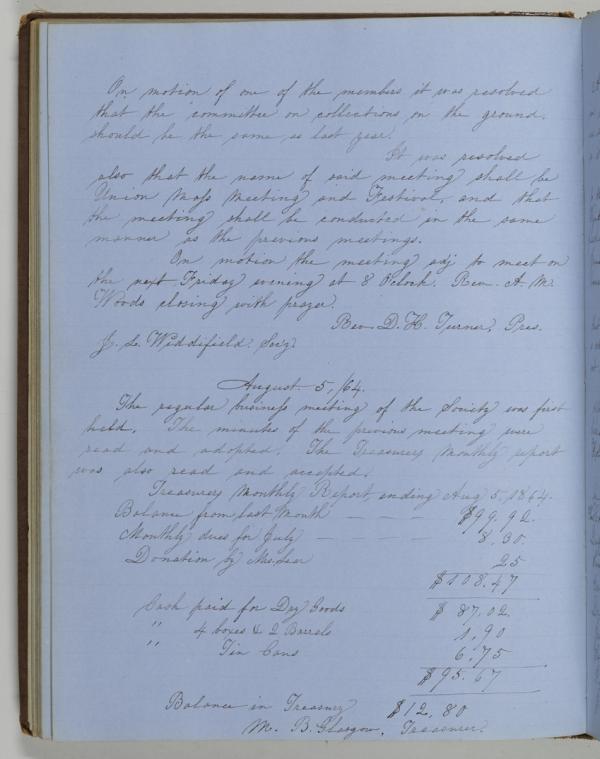 On motion of one of the members it was resolved
that the committee on collections on the ground.
should be the same as last year.
It was resolved
also that the name of said meeting shall be
Union Mass Meeting and Festival, and that
the meeting shall be conducted in the same
manner as the previous meetings.
On motion the meeting adj to meet on
the next Friday evening at 8 Oclock. Rev. A. M.
Woods closing with prayer.
Rev. D. H. Turner, Pres.
J. L. Widdifield. Secy.
August 5, /64.
The regular business meeting of the Society was first
held. The minutes of the previous meeting were
read and adopted. The Treasurers Monthly report
was also read and accepted.
Treasurers Monthly Report, ending Aug 5, 1864.
Balance from last Month $99.92.
Monthly dues for July 8.30.
Donation by Mrs. 25
$108.47
Cash paid for Dry Goods $87.02.
" 4 boxes & 2 Barrels 1.90
" Tin Cans 6.75
$95.67
Balance in Treasury $12.80
M. B. Glasgow, Treasurer.